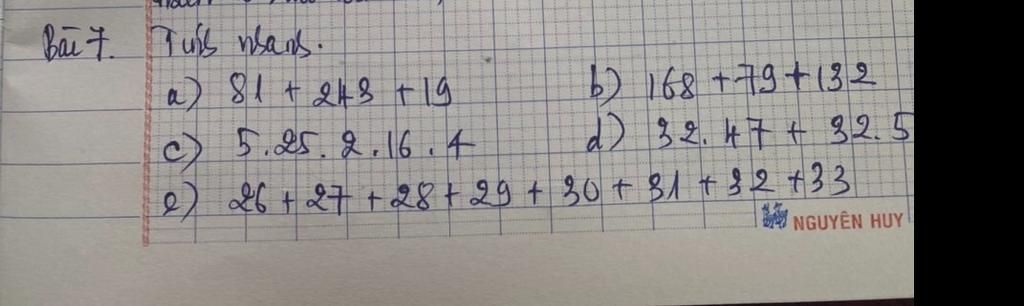 Bài 7. Tính nhanh.
a) 81 + 243 + 19 b) 168 + 79 + 132
c) 5.25.2.16.4 d) 32.47 + 32.5
e) 26 + 27 + 28 + 29 + 30 + 31 + 32 + 33
NGUYÊN HUY